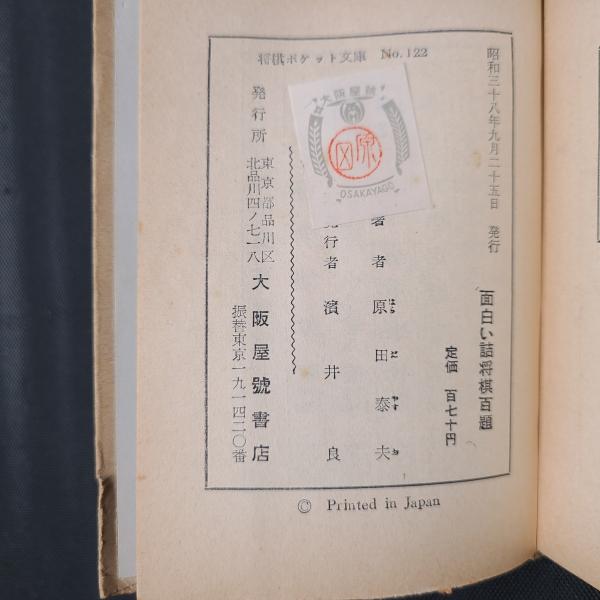 将棋ポケット文庫 No.122
昭和三十八年九月二十五日 発行
面白い詰将棋百題
定価 百七十円
著者 原田泰夫
はら だ やす お
発行者 濱井良
発行所
東京都品川区
北品川四ノ七一八
大阪屋號書店
振替東京一九一四二〇番
大阪屋號
原田
OSAKAYAGO
© Printed in Japan